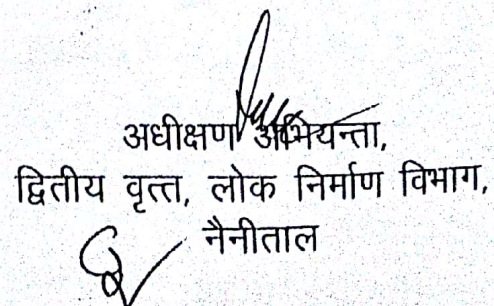 अधीक्षण अभियन्ता,
द्वितीय वृत्त, लोक निर्माण विभाग,
नैनीताल